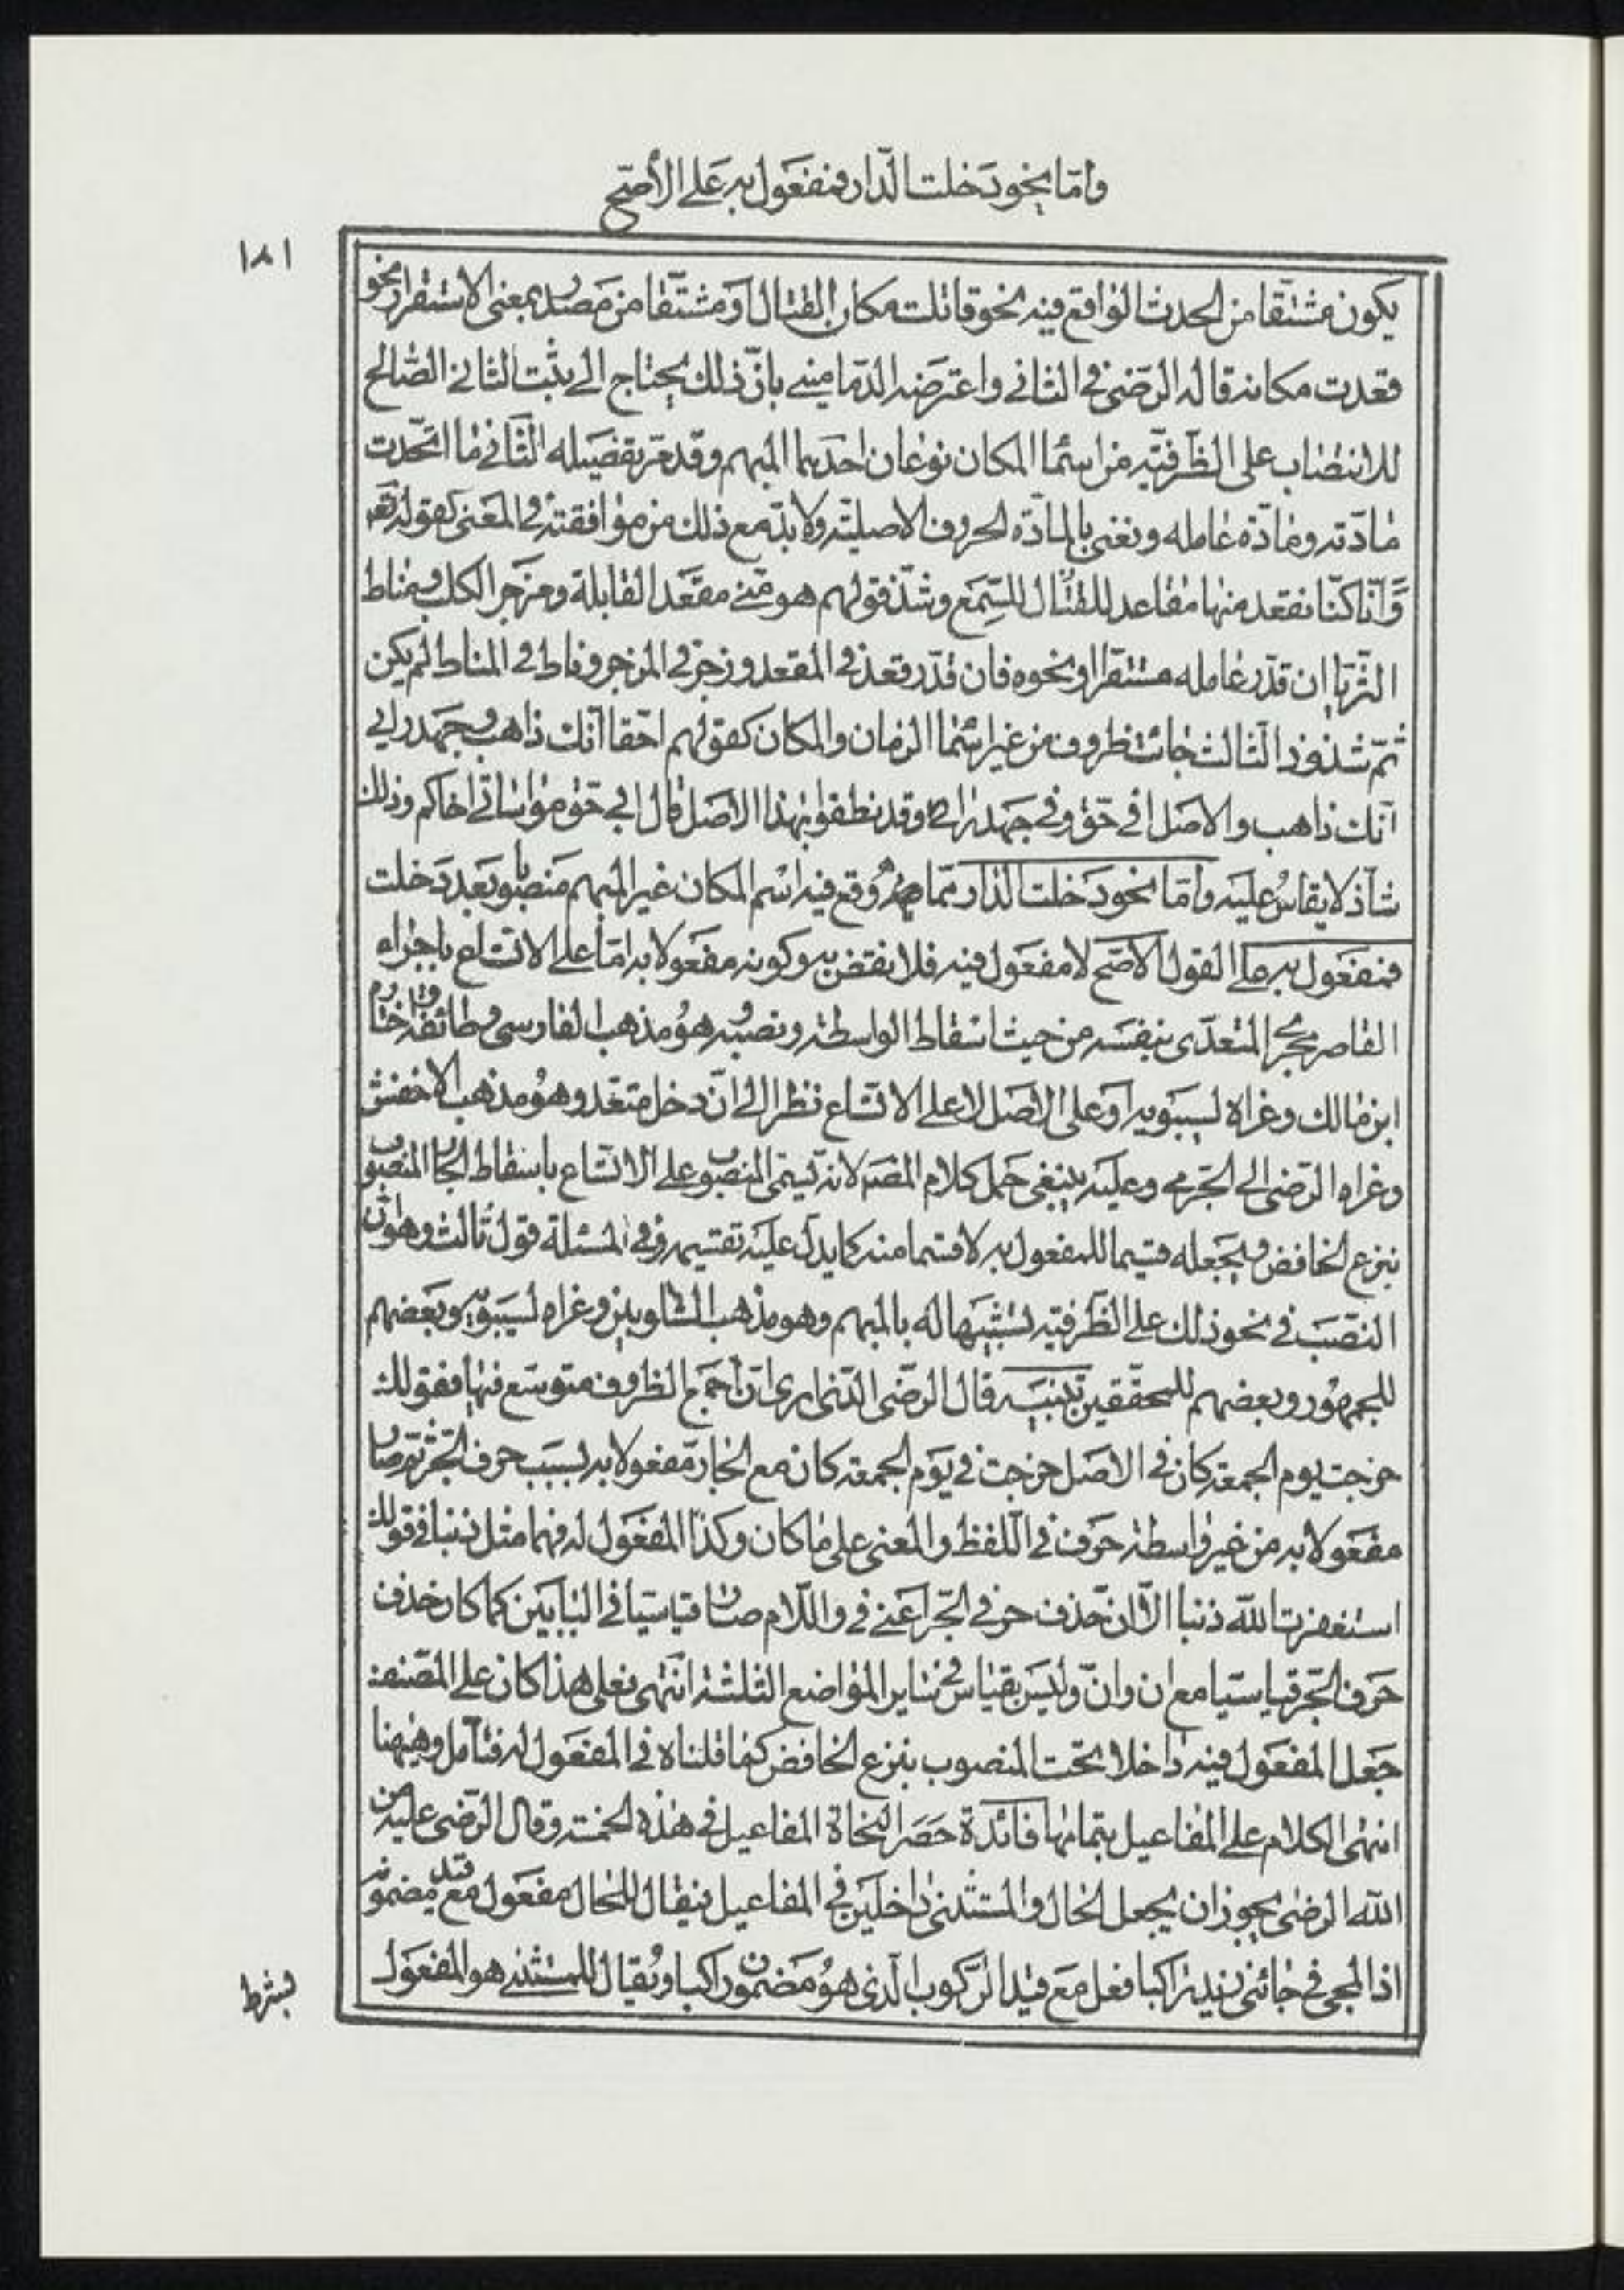 وامّا نحو دَخلت الدّار فمفعَول به عَلى الأصّح
١٨١
يكون مشتقّا من الحدث الواقع فيه نحو قاتلت مكان القتال او مشتقّا من مَصدر بمعنى الاستقرار نحو
قعدت مكانه قاله الرّضى في الثانى واعترضه الدّمامينى بانّ ذلك يحتاج الى يثبت الثانى الصّالح
للانتصاب على الظّرفيّه من اسمآ المكان نوعان احدهما المبهم وقد مرّ تفصيله الثّانى ما اتحّدت
مادّته ومادّة عامله ونعنى بالمادّة الحروف الاصليّه ولا بدّ مع ذلك من موافقته في المعنى كقوله تعَ
وَّانّا كنّا نقعد منها مقاعد للقتال للسّمع وشذّ قولهم هو منّى مقعَد القابلة ومزجر الكلب ومناط
الثّريا ان قدّر عامله مستقرّا او نحوه فان قدّر قعد في المقعد وزجر في المزجر وناط في المناط لم يكن
ثمّ شذوذ الثّالث جائت ظروف من غير اسمآ الزمان والمكان كقولهم احقّا انّك ذاهب وجهد رايى
انّك ذاهب والاصل افى حَق وفى جهد رايى وقد نطقوا بهذا الاصل قال افى حَق مواساتى اخاكم وذلك
شاذ لا يقاسُ عليه وامّا نحو دَخلت الدّار ممّا وقع فيه اسْم المكان غير المبهم منصوبا بعد دَخلت
فمفعَول به على القول الاصّح لا مفعَول فيه فلا نقض به وكونه مفعَولا به امّا على الاتساع باجراء
القاصر مجرَ المتعدّى بنفسَه من حيث اسقاط الواسطة ونصبه هوُ مذهب الفارسى وطائفة واختاره
ابن مالك وعزاه لسيبَويه او على الاصَل لا على الاتساع نظرا الى انّ دخل متعّد وهوُ مذهب الاخفش
وعزاه الرّضى الى الجَرمى وعليه ينبغى حمَل كلام المصَ لانه يسمّى المنصوب على الاتسّاع باسقاط الجار المنصوب
بنزع الخافض ويجعله قسيما للمفعول به لا قسما منه كما يدلّ عليه تقسيمه وفى المسئلة قول ثالث وهو انّ
النصّبَ فى نحو ذلك على الظّرفيّه تشبيهَا له بالمبهم وهو مذهب الشّلوبين وعزاه لسيبَويه وبعَضهم
للجمهوُر وبعضهم للمحقّقين تنبيه قال الرّضى الّذى ارى انّ جميع الظروف متوسّع فيها فقولك
خرجت يوم الجمعة كان فى الاصَل خرجت فى يَوم الجمعة كان مع الجار مّفعولا به بسبب حرف الجّر ثم صار
مفعَولا به من غير واسطة حَرف فى اللّفظ والمعنى على ما كان وكذا المفعَول له فهما مثل ذنبا فى قولك
استغفرت اللّه ذنبا الّا انّ حذف حرفى الجّر اعنى فى واللّام صار قياسيّا فى البابَين كما كان حذف
حَرف الجّر قياسيّا مع ان وانّ وليَس بقياس فى ساير المواضع الثلثة انتهى فعلى هذا كان على المصّنف
جَعل المفعَول فيه داخلا تحّت المنصوب بنزع الخافض كما قلناه فى المفعَول له فتامّل وههنا
انتهى الكلام على المفاعيل بتمامها فائدة حَصَر النّحاة المفاعيل فى هذه الخمسة وقال الرّضى عليه من
اللّه الرضى يجوز ان يجعل الحال والمستثنى داخلَين فى المفاعيل فيقال للحال مفعَول مع قيد مضمونه
اذ المجى فى جائنى زيد راكبا فعل مَع قيد الرّكوب الّذى هوُ مَضمون راكبا ويُقال للمستثنى هو المفعَول
بشرط